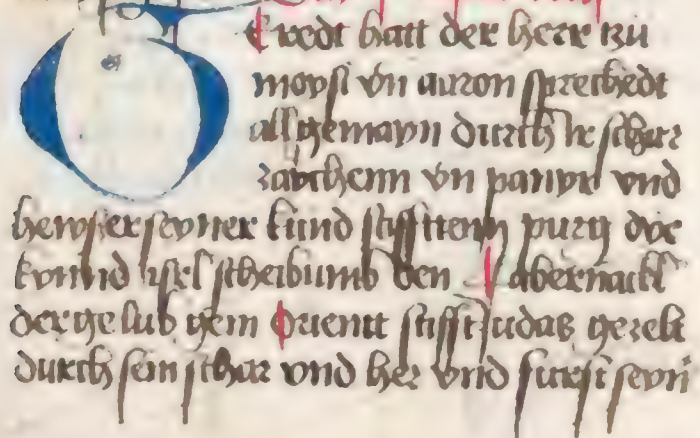 Eredt hatt der herr tzu
moysi vn aaron sprechedt
allgemayn durch ir schar
zaichenn vn panyr vnd
hewser seyner kind stifftenn purg dye
kynnd isrl scheibumb den Tabernackl
der gelub gein Orientt stifft Judas gezelt
durch sein schar vnd her vnd furst seyn